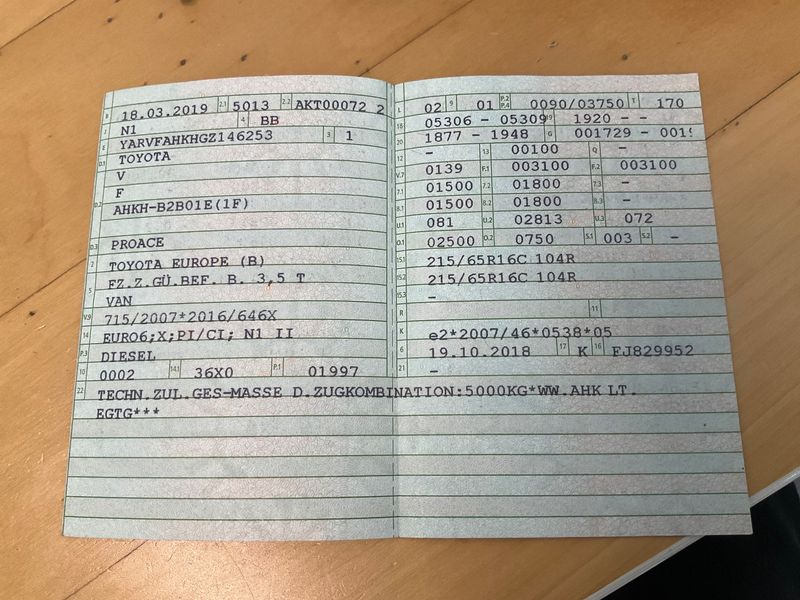 B 18.03.2019 2.1 5013 2.2 AKT00072 2
J N1 4 BB
E YARVFAHKHGZ146253 3 1
D.1 TOYOTA
V
D.2 F
AHKH-B2B01E(1F)
D.3 PROACE
2 TOYOTA EUROPE (B)
5 FZ.Z.GÜ.BEF. B. 3,5 T
VAN
V.9 715/2007*2016/646X
14 EURO6;X;PI/CI; N1 II
P.3 DIESEL
10 0002 14.1 36X0 P.1 01997
22 TECHN.ZUL.GES-MASSE D.ZUGKOMBINATION:5000KG*WW.AHK LT.
EGTG***
L 02 9 01 P.2 P.4 0090/03750 T 170
18 05306 - 05309 19 1920 - -
20 1877 - 1948 G 001729 - 001
12 - 13 00100 Q -
V.7 0139 F.1 003100 F.2 003100
7.1 01500 7.2 01800 7.3 -
8.1 01500 8.2 01800 8.3 -
U.1 081 U.2 02813 U.3 072
O.1 02500 O.2 0750 S.1 003 S.2 -
15.1 215/65R16C 104R
15.2 215/65R16C 104R
15.3 -
R 11
K e2*2007/46*0538*05
6 19.10.2018 17 K 16 FJ829952
21 -